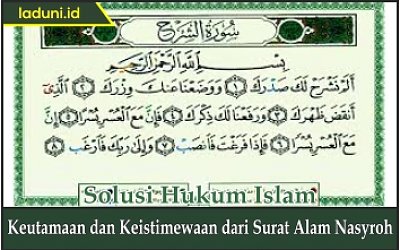 laduni.id
سُورَةُ الشَّرْحِ
بِسْمِ اللَّهِ الرَّحْمَٰنِ الرَّحِيمِ
أَلَمْ نَشْرَحْ لَكَ صَدْرَكَ ١ وَوَضَعْنَا عَنكَ وِزْرَكَ ٢ الَّذِي
أَنقَضَ ظَهْرَكَ ٣ وَرَفَعْنَا لَكَ ذِكْرَكَ ٤ فَإِنَّ مَعَ الْعُسْرِ يُسْرًا ٥ إِنَّ
مَعَ الْعُسْرِ يُسْرًا ٦ فَإِذَا فَرَغْتَ فَانصَبْ ٧ وَإِلَىٰ رَبِّكَ فَارْغَب ٨
Solusi Hukum Islam
Keutamaan dan Keistimewaan dari Surat Alam Nasyroh